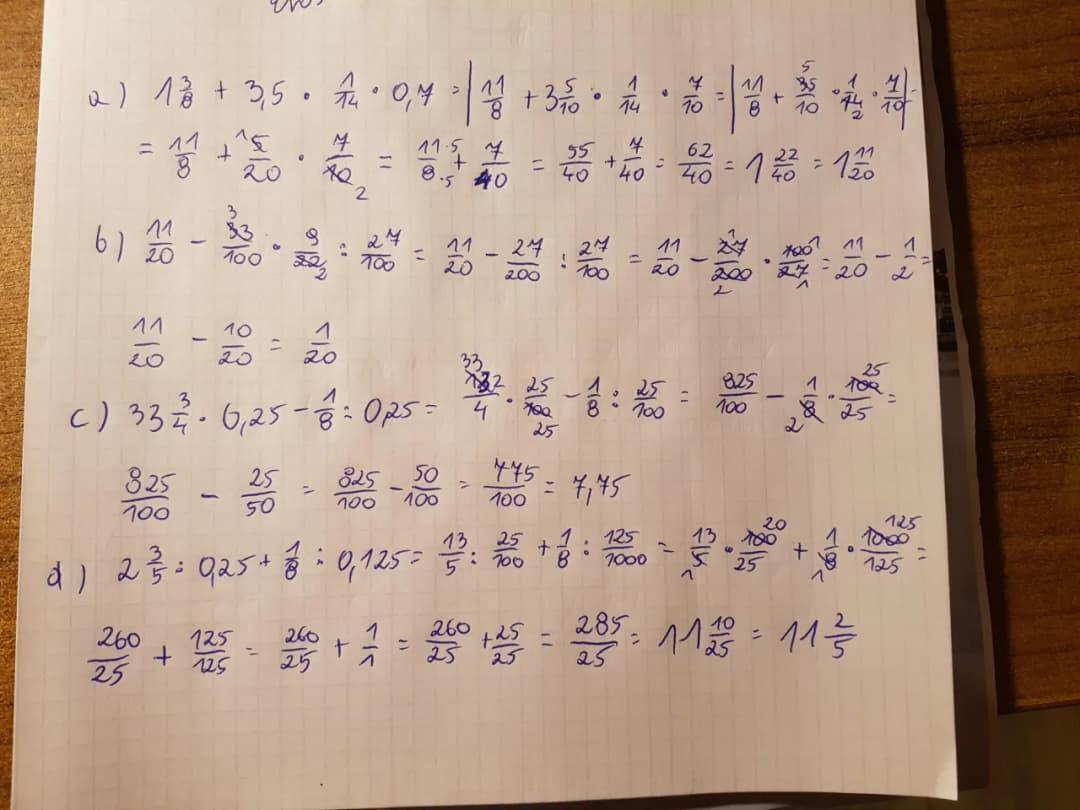 a) 1 3/8 + 3,5 · 1/14 · 0,7 = | 11/8 + 3 5/10 · 1/14 · 7/10 = | 11/8 + 35/10 5 · 1/14 2 · 7/10 | =
= 11/8 + 5/20 1 · 7/10 2 = 11·5/8·5 + 7/40 = 55/40 + 7/40 = 62/40 = 1 22/40 = 1 11/20
b) 11/20 - 33/100 3 · 9/22 2 : 27/100 = 11/20 - 27/200 : 27/100 = 11/20 - 27/200 1 2 · 100/27 1 1 = 11/20 - 1/2 =
11/20 - 10/20 = 1/20
c) 33 3/4 · 0,25 - 1/8 : 0,25 = 132/4 33 · 25/100 25 - 1/8 : 25/100 = 825/100 - 1/8 2 · 100/25 25 =
825/100 - 25/50 = 825/100 - 50/100 = 775/100 = 7,75
d) 2 3/5 : 0,25 + 1/8 : 0,125 = 13/5 : 25/100 + 1/8 : 125/1000 = 13/5 1 · 100/25 20 + 1/8 1 · 1000/125 125 =
260/25 + 125/125 = 260/25 + 1/1 = 260/25 + 25/25 = 285/25 = 11 10/25 = 11 2/5